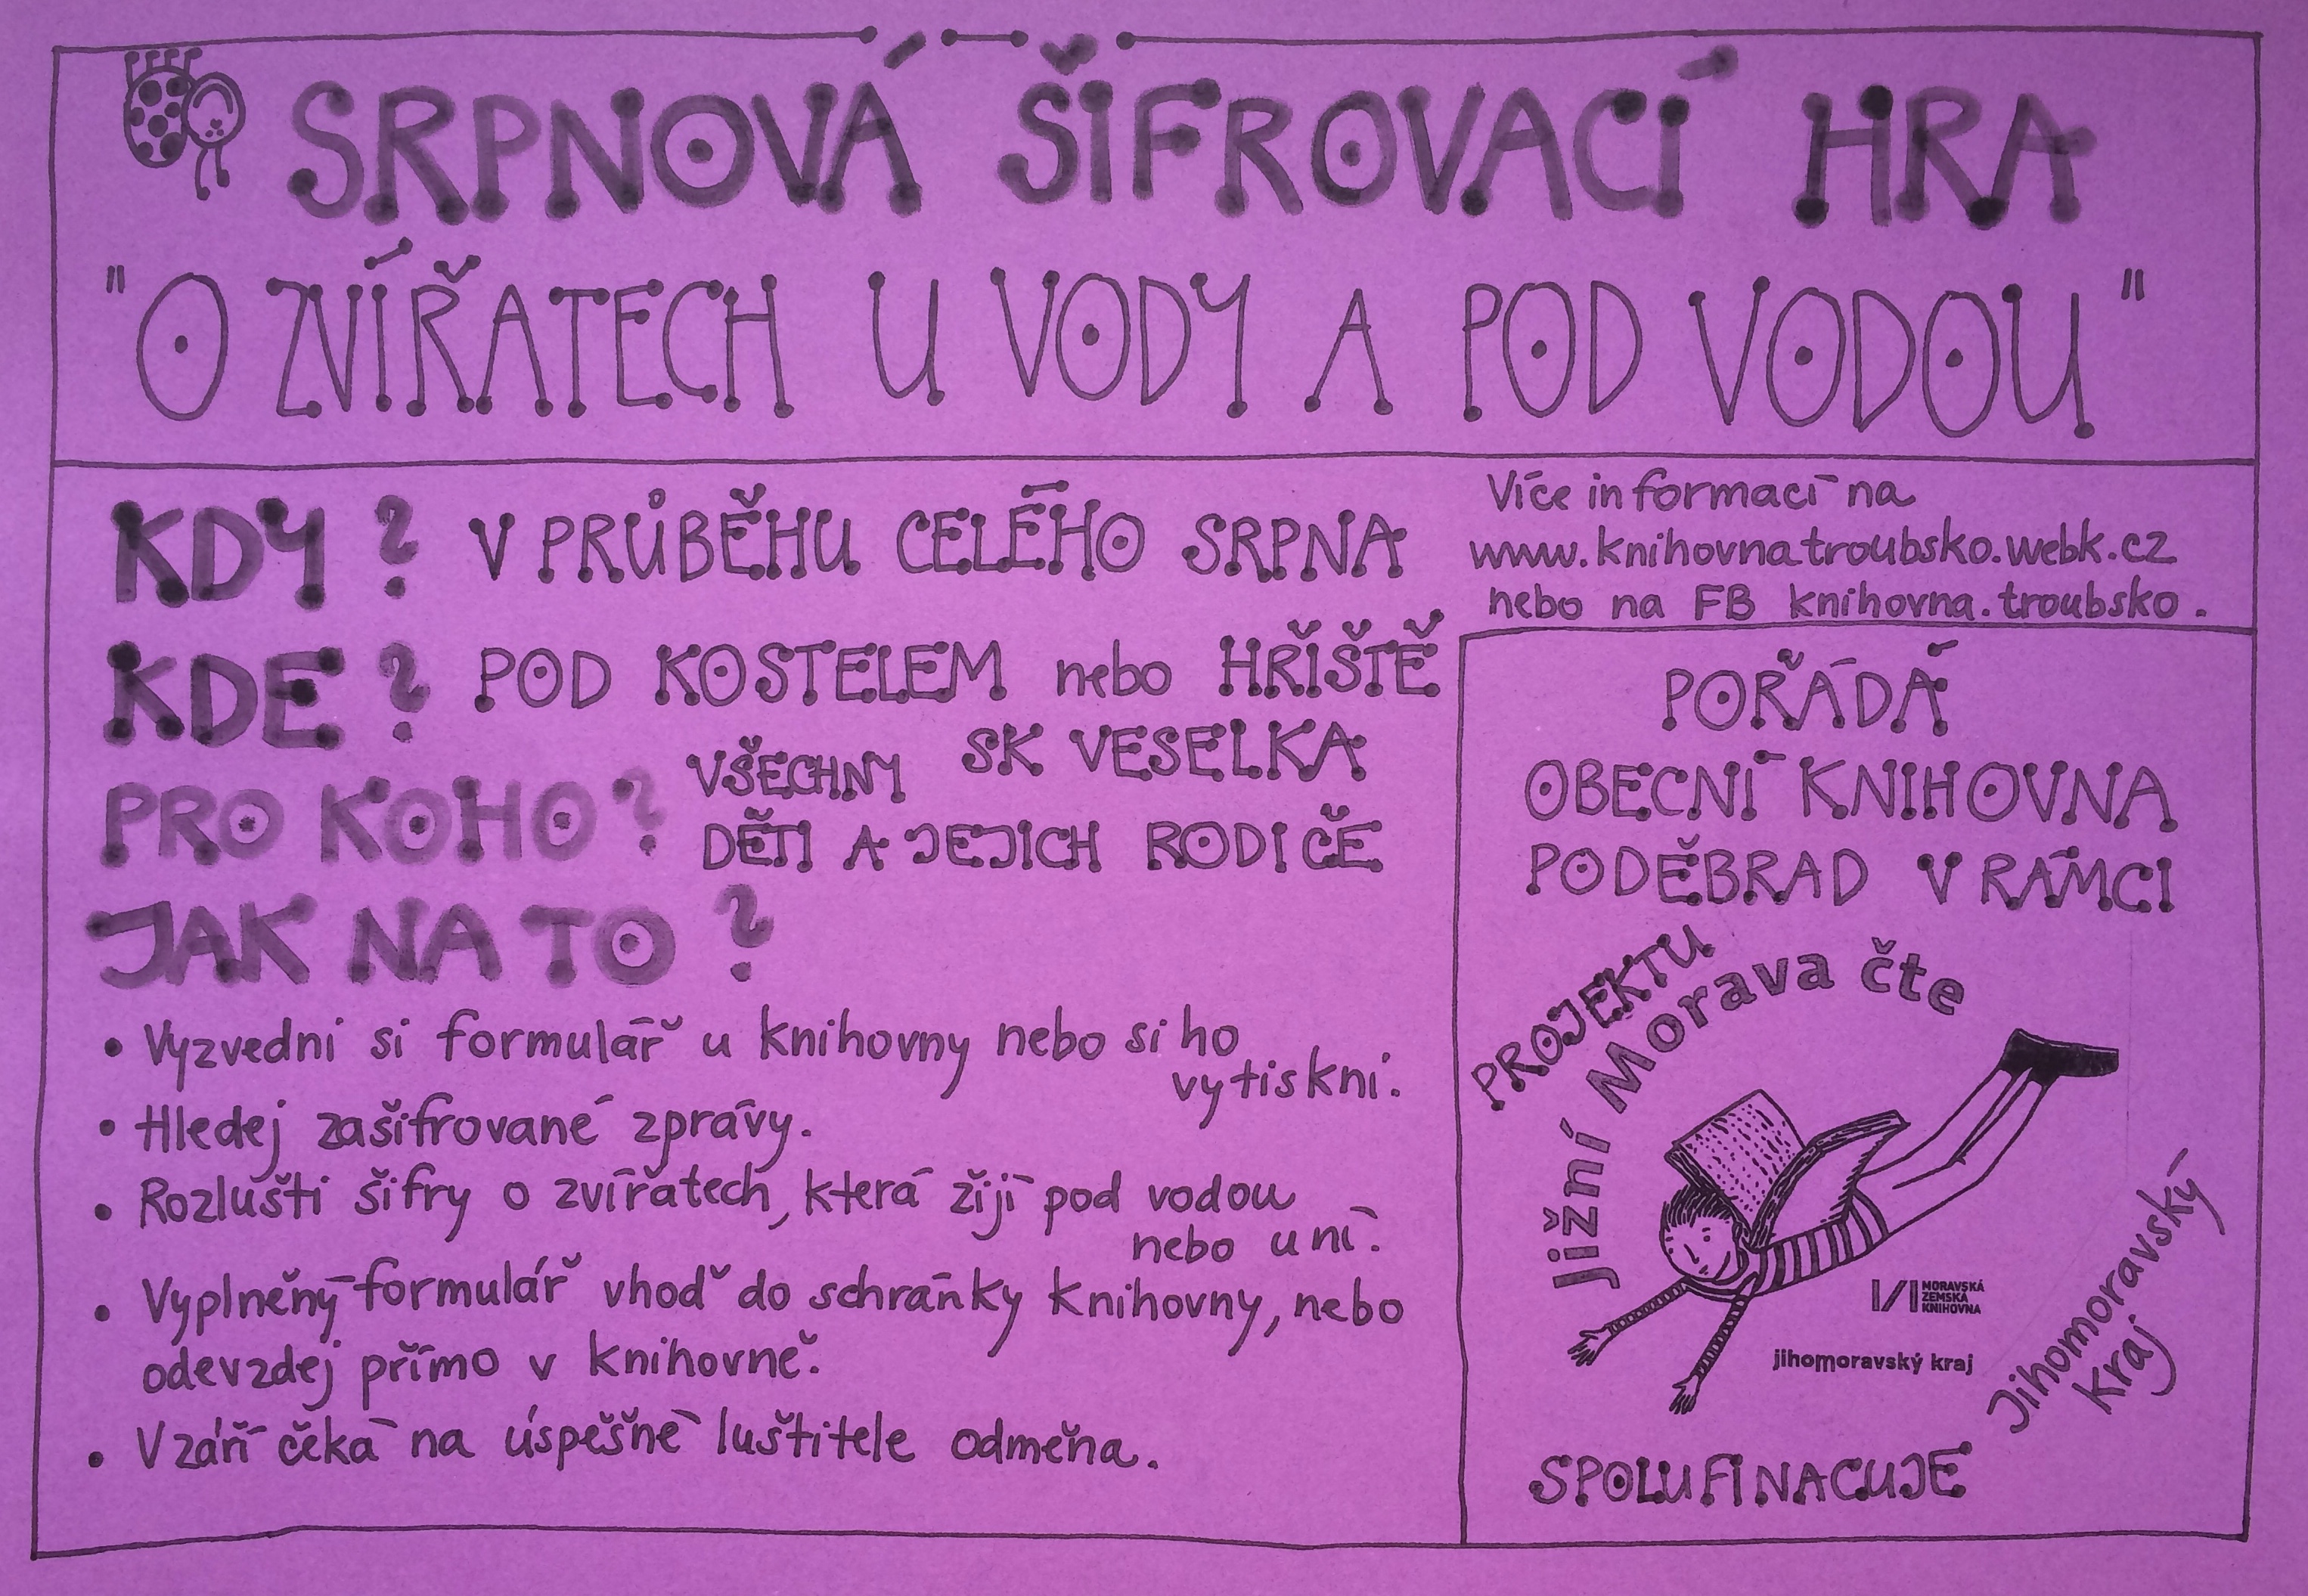 SRPNOVÁ ŠIFROVACÍ HRA
"O ZVÍŘATECH U VODY A POD VODOU"
KDY? V PRŮBĚHU CELÉHO SRPNA
KDE? POD KOSTELEM nebo HŘIŠTĚ
SK VESELKA
PRO KOHO? VŠECHNY
DĚTI A JEJICH RODIČE
JAK NA TO?
• Vyzvedni si formulář u knihovny nebo si ho
vytiskni.
• Hledej zašifrované zprávy.
• Rozlušti šifry o zvířatech, která žijí pod vodou
nebo u ní.
• Vyplněný formulář vhoď do schránky knihovny, nebo
odevzdej přímo v knihovně.
• V září čeká na úspěšné luštitele odměna.
Více informací na
www.knihovnatroubsko.webk.cz
nebo na FB knihovna.troubsko.
POŘÁDÁ
OBECNÍ KNIHOVNA
PODĚBRAD V RÁMCI
PROJEKTU
Jižní Morava čte
MORAVSKÁ
ZEMSKÁ
KNIHOVNA
jihomoravský kraj
SPOLUFINACUJE
Jihomoravský
Kraj